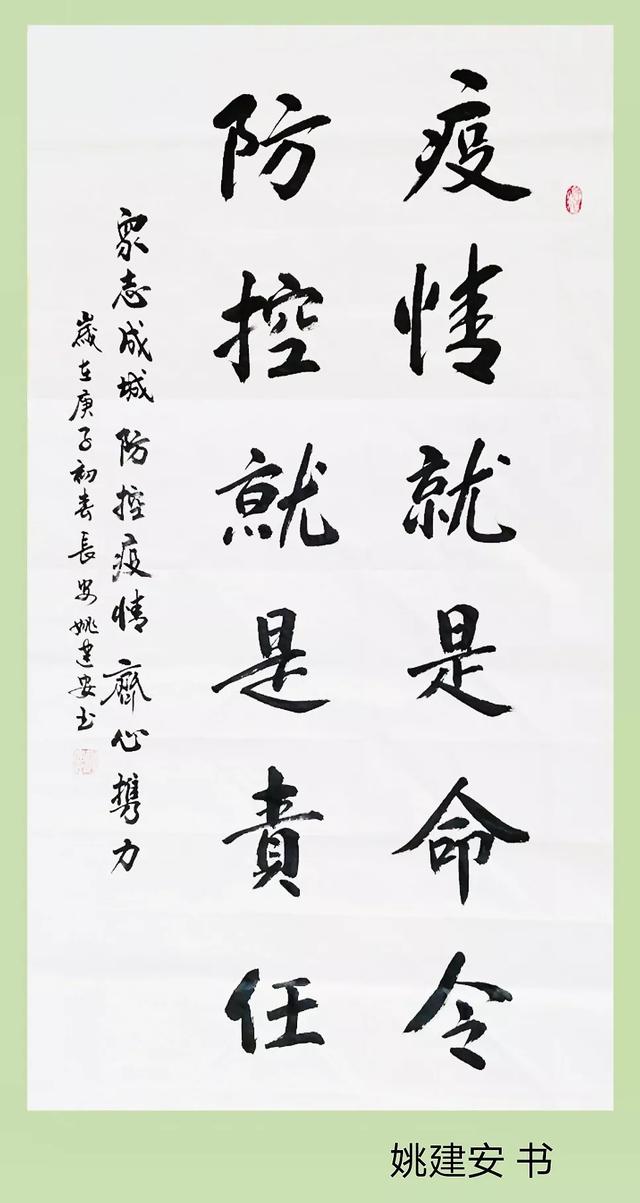 疫情就是命令
防控就是責任
衆志成城防控疫情齊心携力
歲在庚子初春長安姚建安书
姚建安 书